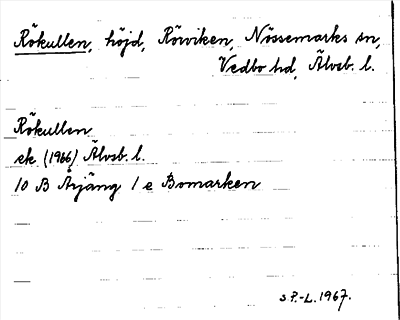 Rökullen, höjd, Rörviken, Nössemarks sn,
Vedbo hd, Älvsb. l.
Rökullen
ek. (1966) Älvsb. l.
10 B Årjäng 1 e Bomarken
S P.-L. 1967.